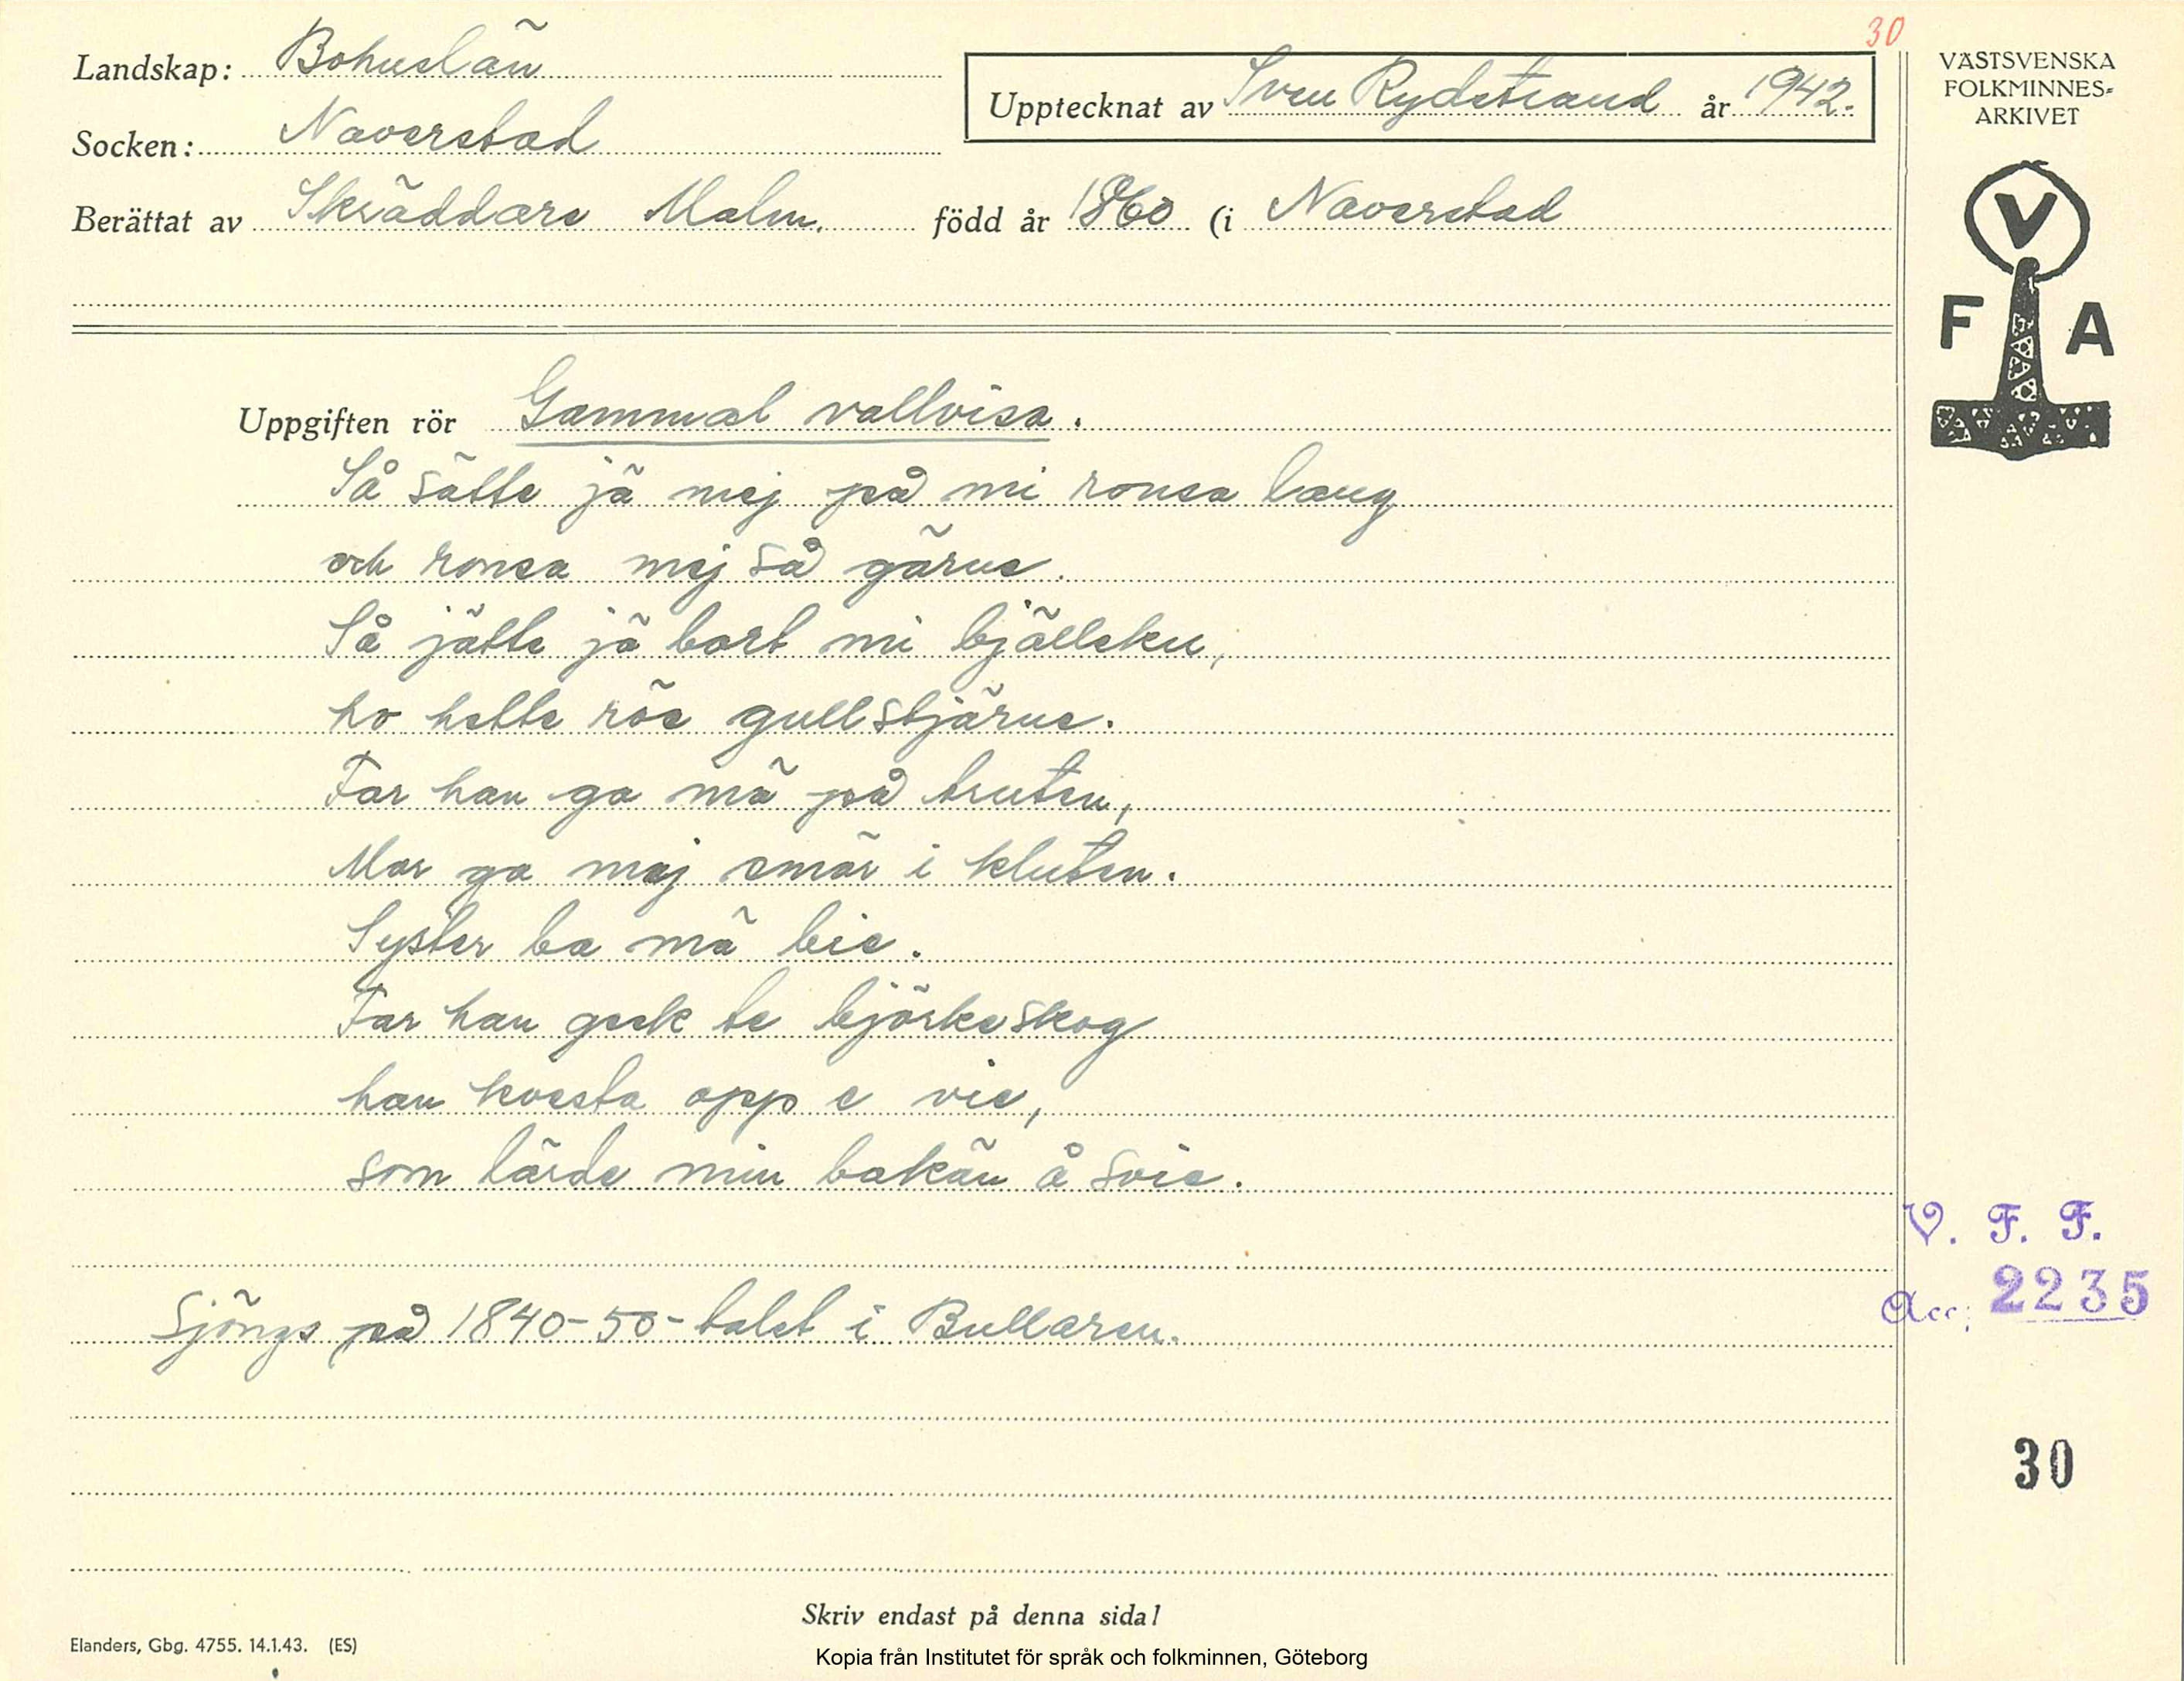 30
Landskap: Bohuslän
Upptecknat av Sven Rydstrand år 1942.
Socken: Naverstad
Berättat av Skräddare Malm. född år 1860 (i Naverstad
VÄSTSVENSKA
FOLKMINNES=
ARKIVET
V
F A
Uppgiften rör Gammal vallvisa.
Så sätte jä mej på mi ronsa lang
och ronsa mej så gärne.
Så jätte jä bort mi bjälleku,
ho hette röe gullstjärne.
Far han ga mä på truten,
Mor ga mej smör i kluten.
Syster ba mä bie.
Far han geck te björkeskog
han kvesta opp e vie,
som lärde min bakän å svie.
V. F. F.
Acc: 2235
Sjöngs på 1840-50-talet i Bullaren.
30
Skriv endast på denna sida!
Elanders, Gbg. 4755. 14.1.43. (ES)
Kopia från Institutet för språk och folkminnen, Göteborg